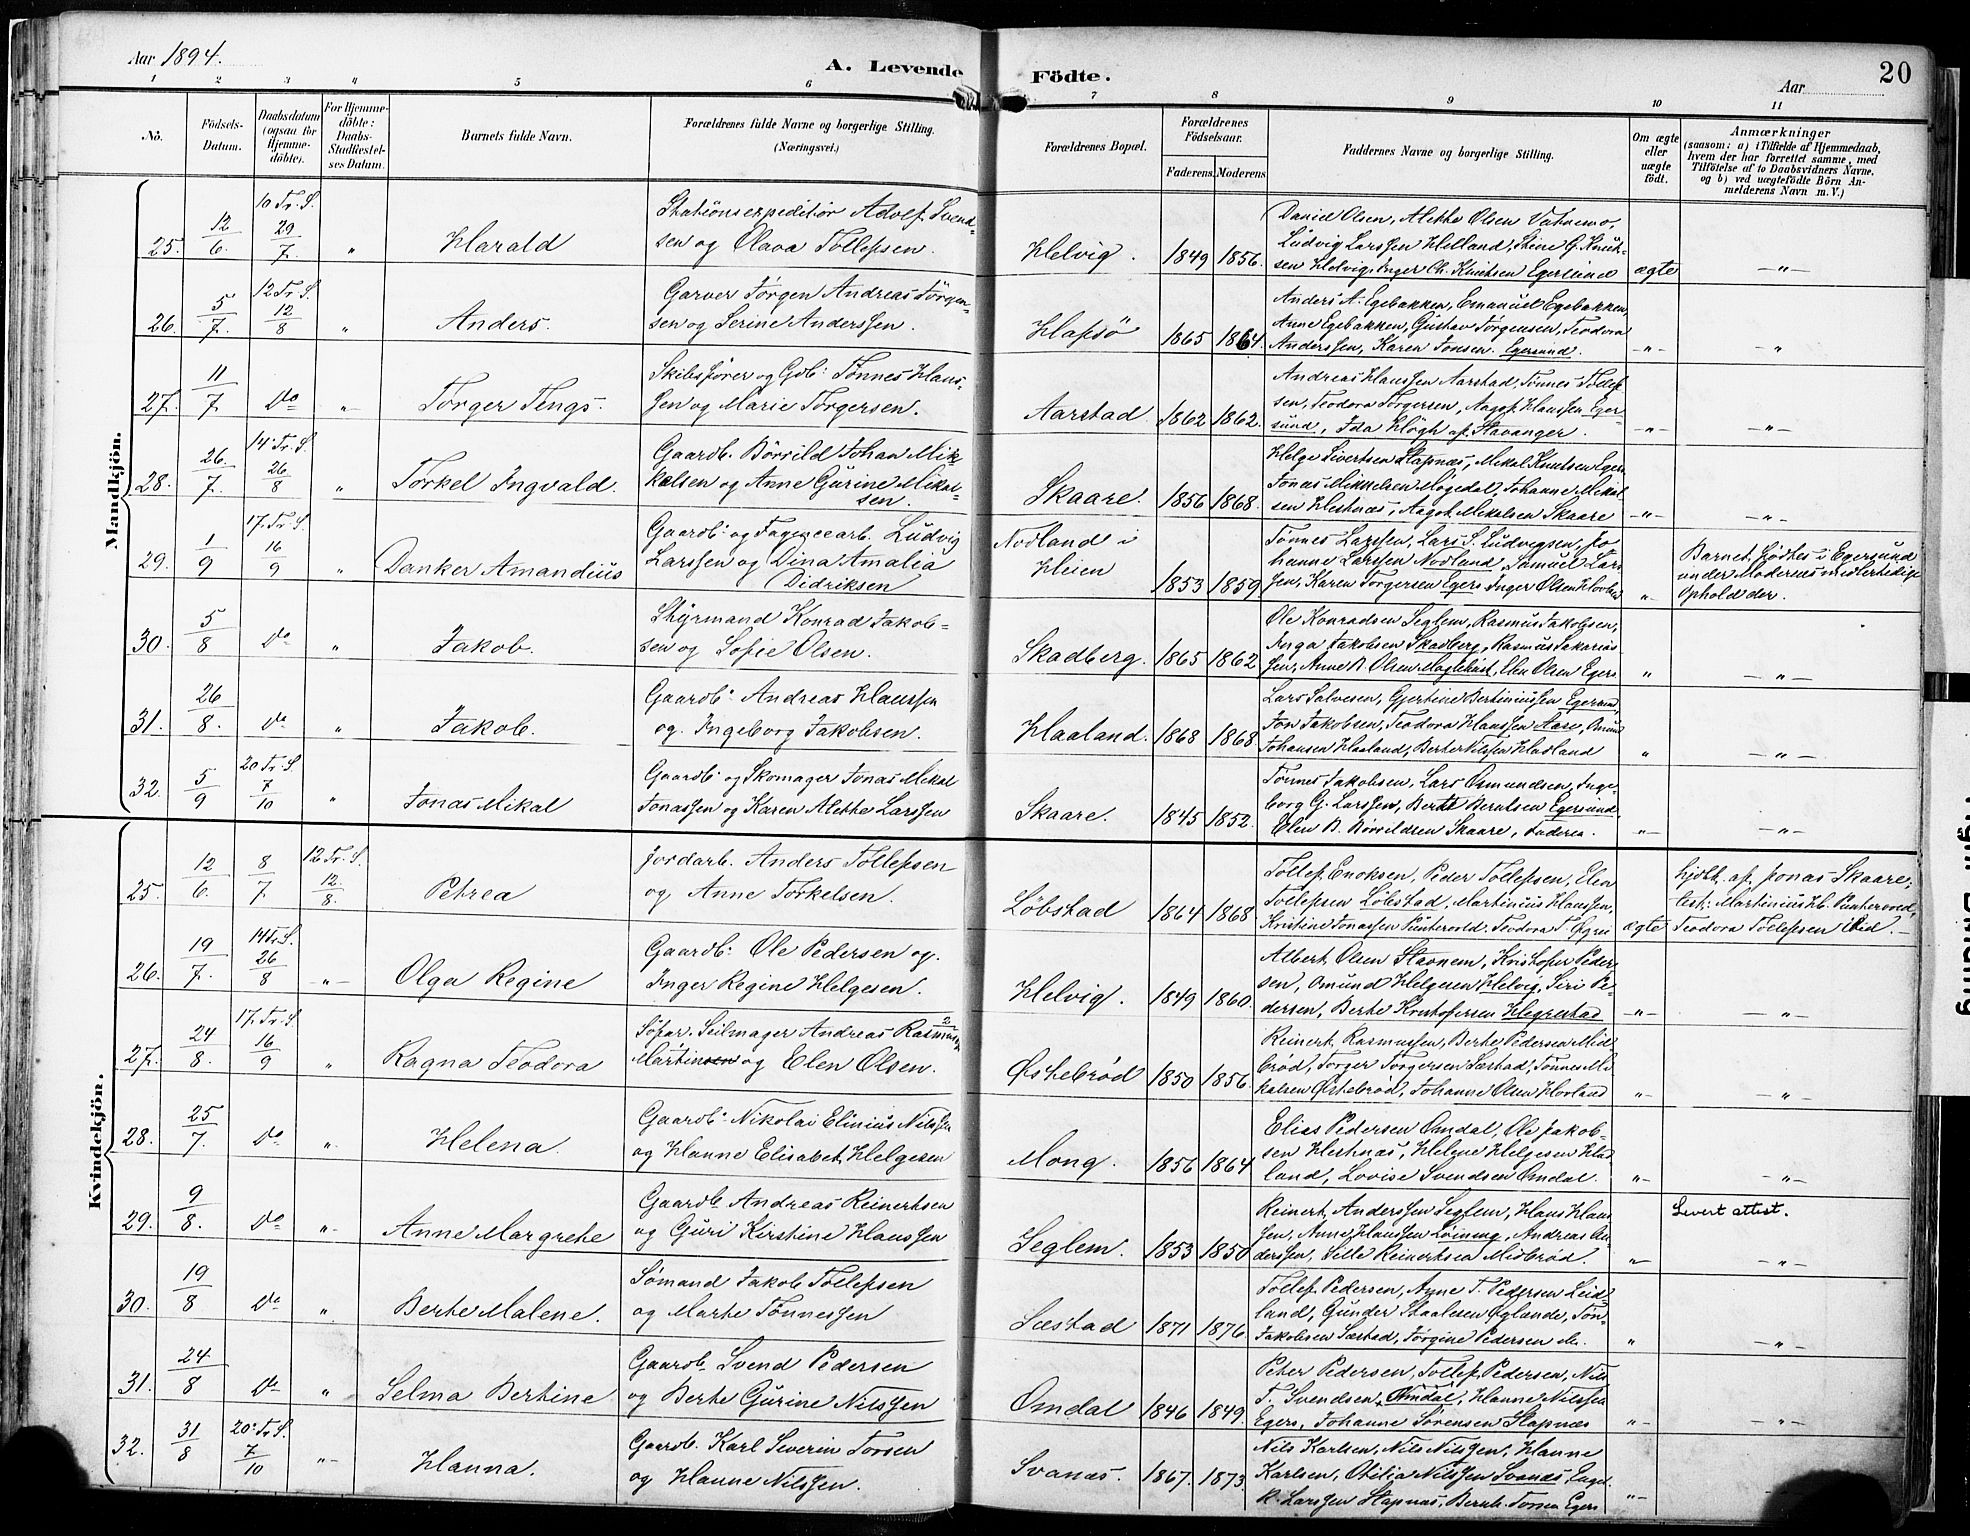 Aar 1894.
A. Levende Födte.
Aar
20
1 2 3 4 5 6 7 8 9 10 11
No.
Födsels-Datum.
Daabsdatum (ogsaa for Hjemme-döbte).
For Hjemme-döbte: Daabs-Stadfæstelses Datum.
Barnets fulde Navn.
Forældrenes fulde Navne og borgerlige Stilling. (Næringsvei.)
Forældrenes Bopæl.
Forældrenes Födselsaar.
Faderens. Moderens.
Faddernes Navne og borgerlige Stilling.
Om ægte eller uægte födt.
Anmærkninger (saasom: a) i Tilfælde af Hjemmedaab, hvem der har forrettet samme, med Tilföielse af to Daabsvidners Navne, og b) ved uægtefödte Börn Anmelderens Navn m. V.)
Mandkjön.
25. 12/6. 10 Tr. S. 29/7. " Harald
Stationsexpeditör Adolf Svend-
sen og Olava Tollefsen.
Helvig. 1849 1856.
Daniel Olsen, Alette Olsen Vatnemo,
Ludvig Larssen Helland, Stine G. Knut-
sen Helvig, Inger Ch. Knutsen Egersund ægte -"-
26. 5/7. 12 Tr. S. 12/8 " Anders.
Garver Jörgen Andreas Jörgen-
sen og Serine Anderssen.
Hafsö 1865 1864.
Anders A. Egebakken, Emanuel Egebakken,
Anne Egebakken, Gustav Jörgensen, Teodora
Anderssen, Karen Jonsen. Egersund. -"- "
27. 11/7 Do " Torger Tengs.
Skibsfører og Gdb: Tønnes Hans-
sen og Marie Torgersen.
Aarstad 1862 1862.
Andreas Hanssen Aarstad, Tønnes Tollef-
sen, Teodora Torgersen, Aagot Hanssen Eger-
sund, Ida Høgh af Stavanger. -"- -"-
28. 26/7. 14: Tr. S. 26/8 " Torkel Ingvald.
Gaardb. Börrild Johan Mik-
kelsen og Anne Gurine Mikal-
sen.
Skaare. 1856 1868.
Helge Sivertsen Stapnæs, Mikal Knutsen Egers.
Jonas Mikkelsen Møgedal, Johanne Mikal
sen Hestnæs, Aagot Mikalsen Skaare -"- -"-
29. 1/9 17. Tr. S. 16/9 " Danker Amandius
Gaardb: og Fayancearb. Ludvig
Larssen og Dina Amalia
Didriksen
Nodland i
Heien 1853 1859
Tönnes Larssen, Lars S. Ludvigsen, Jo
hanne Larssen Nodland, Samuel Lars
sen, Karen Torgersen Egers. Inger Olsen Hovland "
Barnet födtes i Egersund
under Moderens midlertidige
Ophold der.
30. 5/8 Do " Jakob.
Styrmand Konrad Jakob-
sen og Sofie Olsen.
Skadberg. 1865 1862
Ole Konradsen Seglem, Rasmus Jakobsen,
Inga Jakobsen Skadberg, Rasmus Sakarias
sen, Anne B. Olsen Maglehust, Elen Olsen Egers " -"-
31. 26/8. Do " Jakob.
Gaardb: Andreas Hanssen
og Ingeborg Jakobsen.
Haaland. 1868 1868
Lars Salvesen, Gjertine Bertiniussen Egersund,
Jon Jakobsen, Teodora Hanssen Aase, Omund
Johansen Haaland, Berte Nilssen Haaland " -"-
32. 5/9 20 Tr. S. 7/10 " Jonas Mikal
Gaardb: og Skomager Jonas Mikal
Jonassen og Karen Alette Larssen
Skaare. 1845 1852.
Tönnes Jakobsen, Lars Omundsen, Inge-
borg G. Larssen, Berte Berntsen Egersund,
Elen B. Börrildsen Skaare, -"- -"-
Kvindekjön.
25. 12/6 8/7. 12 Tr. S. 12/8. Petrea
Jordarb. Anders Tollefsen
og Anne Torkelsen.
Löbstad 1864 1868
Tollef Enoksen, Peder Tollefsen, Elen
Tollefsen Löbstad, Martinius Hanssen,
Kristine Jonassen Puntervold. Teodora T. ægte
hjdbt. af Jonas Skaare;
test: Martinius H. Puntervold,
Teodora Tollefsen
26. 19/7. 14 Tr. S. 26/8 -"- Olga Regine
Gaardb: Ole Pedersen og
Inger Regine Helgesen.
Helvig. 1849 1860.
Albert Olsen Stavnem, Kristofer Peder-
sen, Omund Helgesen Helvig, Siri Pe-
dersen, Berte Kristofersen Hegrestad -"- -"-
27. 24/8. 17. Tr. S. 16/9 " Ragna Teodora
Søfar. Seilmager Andreas Rasmus
Martinsen og Elen Olsen.
Østebrød 1850 1856.
Reinert Rasmussen, Berte Pedersen Mid-
brød, Torger Torgersen Sæstad, Tønnes Mi-
kalsen Østebrød, Johanne Olsen Hovland " "
28. 25/7. Do " Helena.
Gaardb: Nikolai Elinius Nilssen
og Hanne Elisabet Helgesen
Mong. 1856 1864
Elias Pedersen Omdal, Ole Jakob-
sen Hestnæs, Helene Helgesen Haa
land, Lovise Svendsen Omdal. " -"-
29. 9/8. Do " Anne Margrete
Gaardb. Andreas Reinertsen
og Guri Kirstine Hanssen
Seglem. 1853 1850
Reinert Anderssen Seglem, Hans Hans
sen, Anne Hanssen Løining, Andreas An
derssen, Sille Reinertsen Midbrød. " -"-
Levert attest.
30. 19/8 Do " Berte Malene.
Sømand Jakob Tollefsen
og Marte Tønnessen
Sæstad 1871 1876
Tollef Pedersen, Anne T. Pedersen Leid-
land, Gunder Staalesen Øglande, Tøn-
Jakobsen Sæstad, Jorgine Pedersen do. " -"-
31. 24/8 Do " Selma Bertine
Gaardb. Svend Pedersen
og Berte Gurine Nilssen
Omdal 1846 1849.
Peter Pedersen, Tollef Pedersen, Nils
T. Svendsen, Omdal, Hanne Nilssen
Egers, Johanne Sørensen Stapnæs -"- -"-
32. 31/8 20: Tr. S. 7/10 -"- Hanna.
Gaardb. Karl Severin Torsen
og Hanne Nilssen.
Svanæs. 1867. 1873
Nils Karlsen, Nils Nilssen, Hanne
Karlsen, Otilia Nilssen Svanæs, Engel
R. Larssen Stapnæs, Bernt Torsen Egers -"-